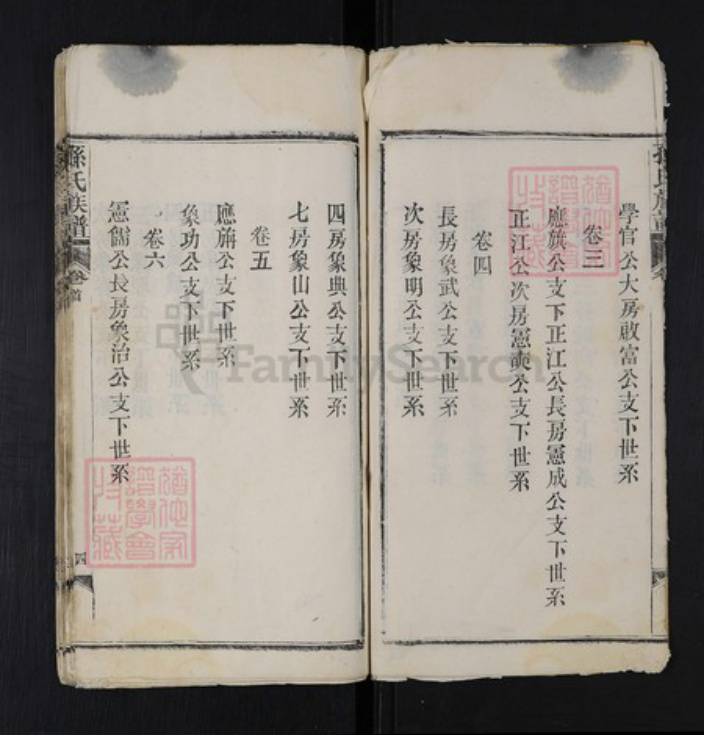 學官公大房啟富公支下世系
卷三
應旗公支下正江公長房憲成公支下世系
正江公次房憲奭公支下世系
卷四
長房象武公支下世系
次房象明公支下世系
四房象典公支下世系
七房象山公支下世系
卷五
應旂公支下世系
象功公支下世系
卷六
憲儒公長房象治公支下世系
孫氏族譜
卷首
四
FamilySearch